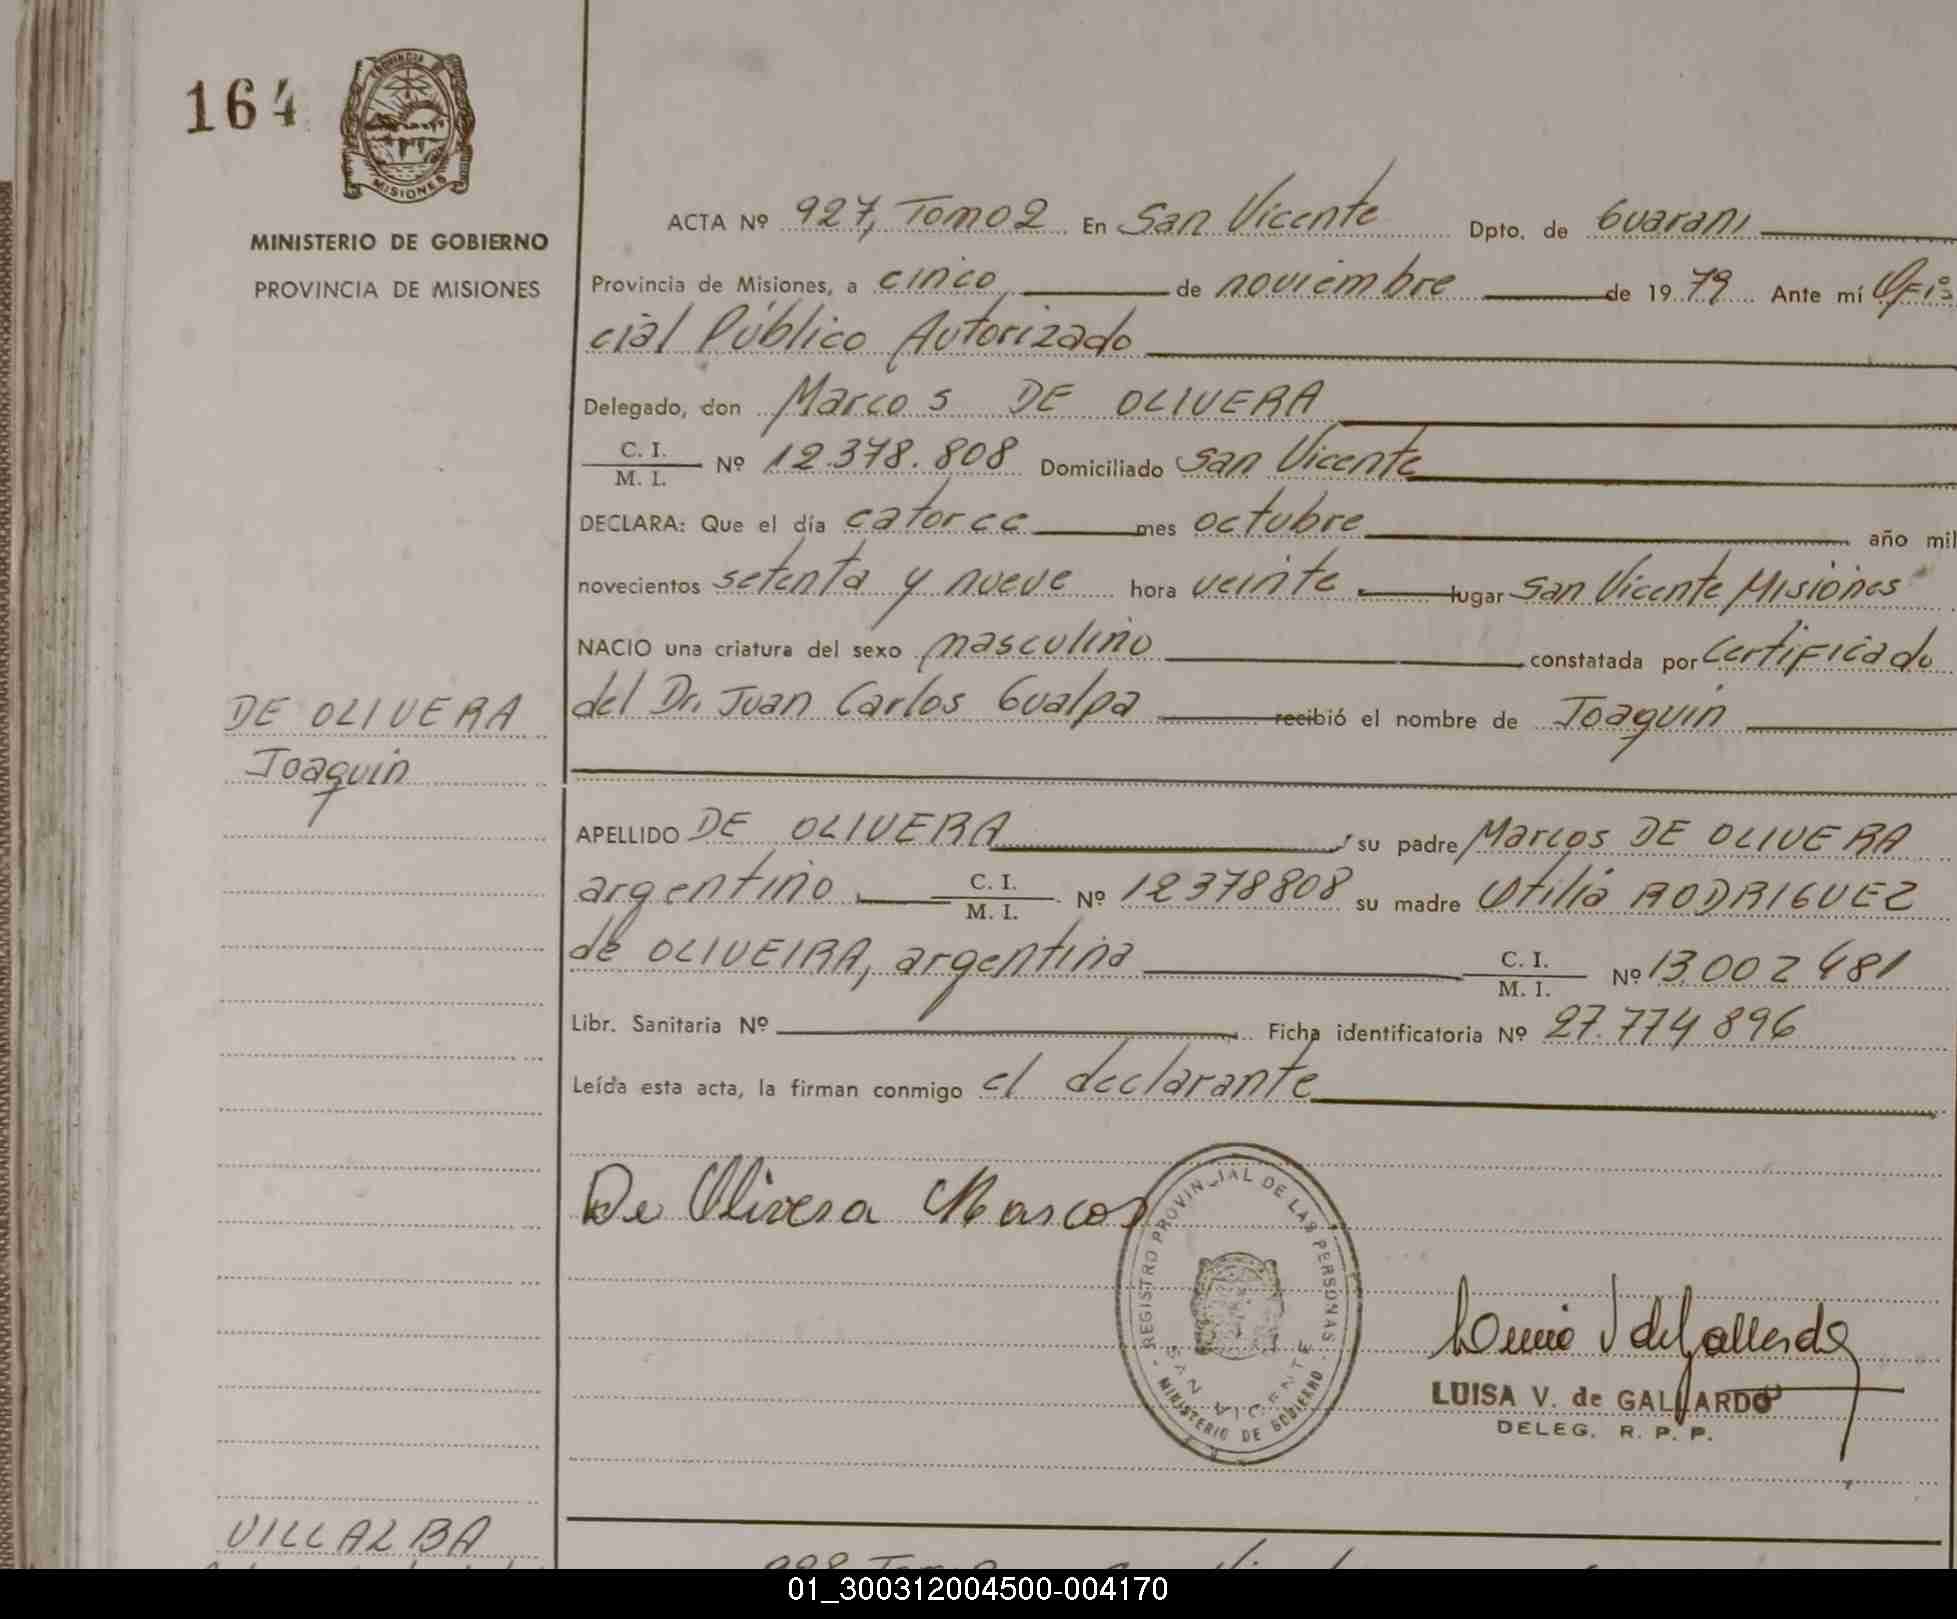 164
PROVINCIA D
MISIONES
MINISTERIO DE GOBIERNO
PROVINCIA DE MISIONES
ACTA Nº 927, Tomo 2 En San Vicente Dpto. de Guarani
Provincia de Misiones, a cinco de noviembre de 1979 Ante mí Ofi=
cial Público Autorizado
Delegado, don Marcos DE OLIVERA
C. I.
M. I. Nº 12.378.808 Domiciliado San Vicente
DECLARA: Que el día catorce mes octubre año mil
novecientos setenta y nueve hora veinte lugar San Vicente Misiones
NACIO una criatura del sexo masculino constatada por Certificado
del Dr. Juan Carlos Gualpa recibió el nombre de Joaquin
DE OLIVERA
Joaquin
APELLIDO DE OLIVERA, su padre Marcos DE OLIVERA
argentino C. I.
M. I. Nº 12378808 su madre Otilia RODRIGUEZ
de OLIVEIRA, argentina C. I.
M. I. Nº 13.002.481
Libr. Sanitaria Nº Ficha identificatoria Nº 27.774.896
Leída esta acta, la firman conmigo el declarante
De Olivera Marcos
REGISTRO PROVINCIAL DE LAS PERSONAS
SAN VICENTE
MINISTERIO DE GOBIERNO
Luisa V de Gallardo
LUISA V. de GALLARDO
DELEG. R. P. P.
VILLALBA
01_300312004500-004170